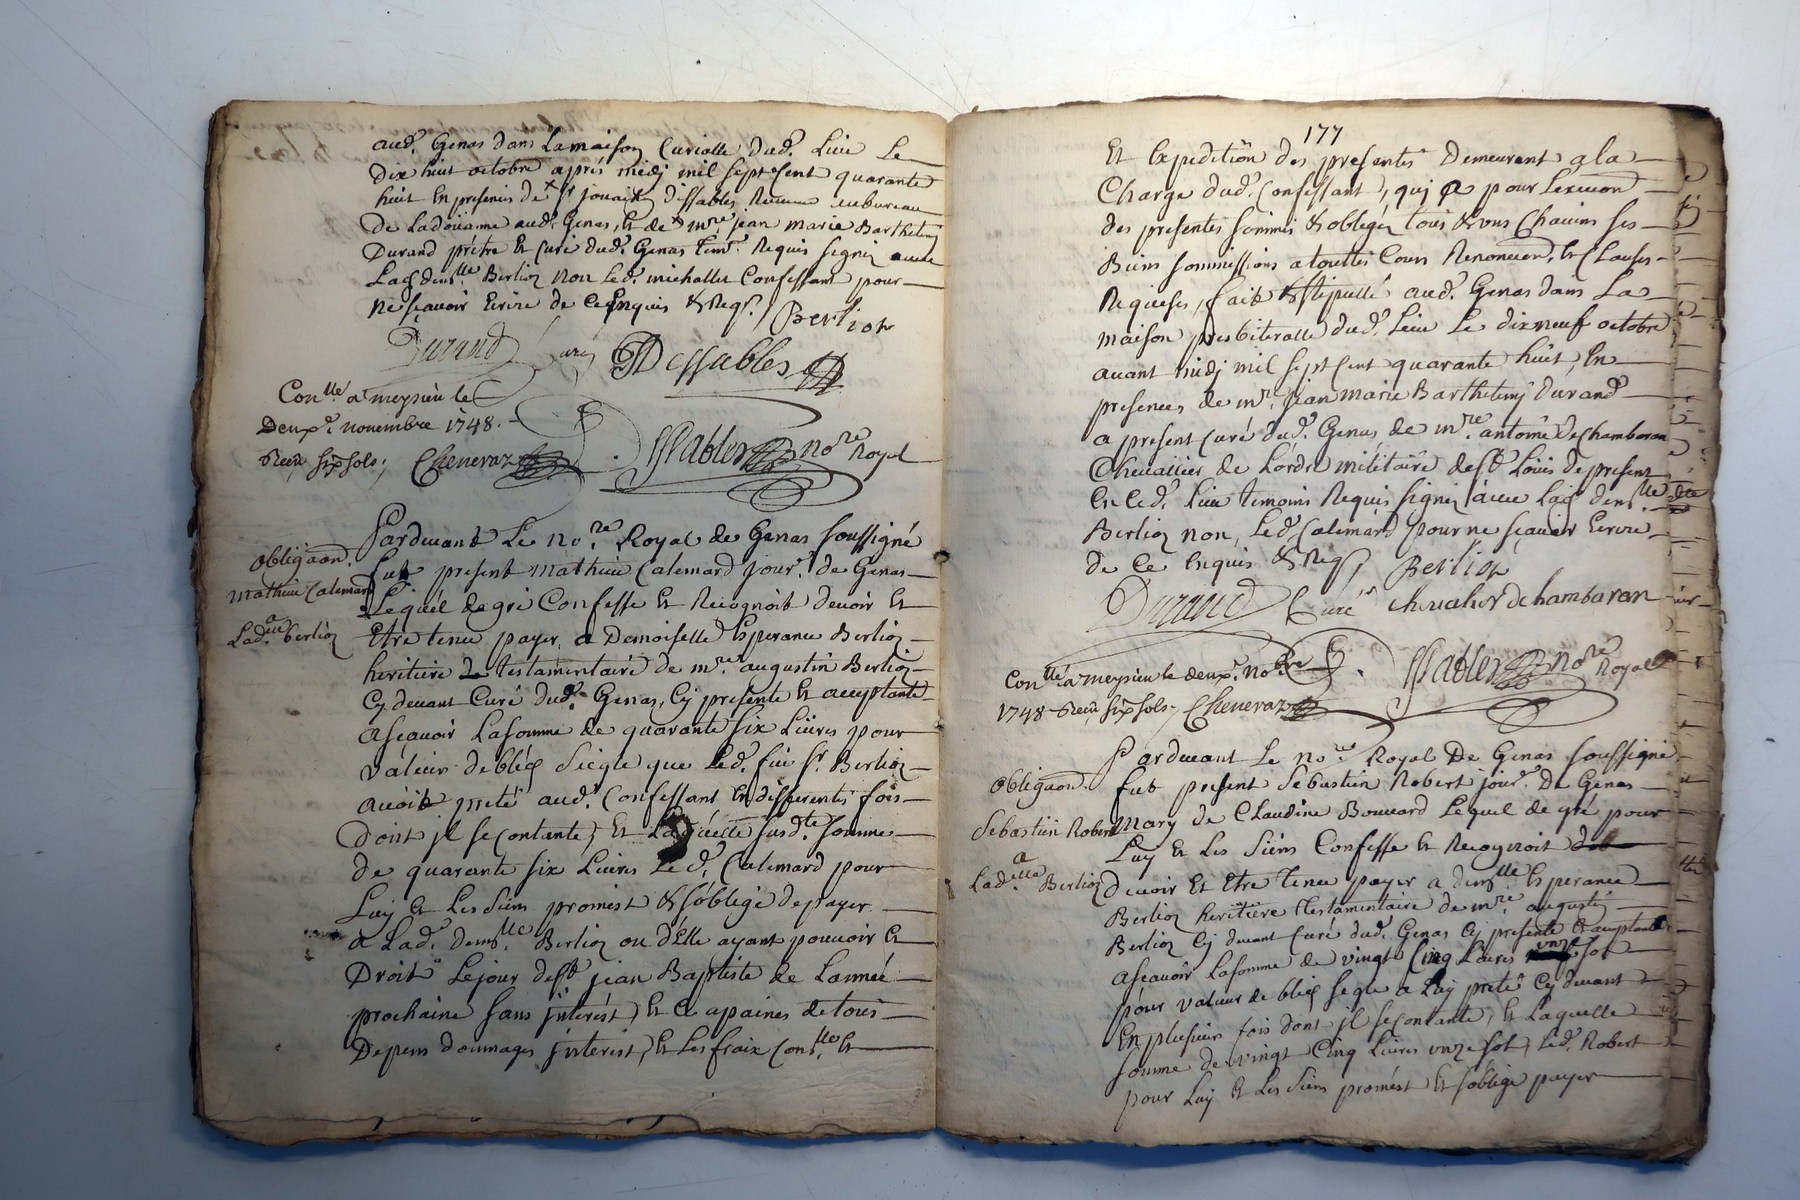 aud. Genas dans La maison Curialle dud. Lieu Le
Dix huit octobre après midj mil sept Cent quarante
huit En presences de sr jouait dessables Receveur au bureau
De La doüanne aud. Genas, Et de mre jean marie Barthelemj
Durand prêtre Et Curé dud. Genas tem. Requis signéz avec
Lad demlle Berlioz non Led. michallet Confessant pour
Ne sçavoir Ecrire de Ce Enquis & Req.
Berlioz
Durand Curé
Dessables
Conlle a meysieu le
Deuxe. novembre 1748.
Receu six sols, Cheneraz
Dessables nore Royal
Pardevant Le nore Royal de Genas soussigné
obligaon.
fut present mathieu Calemard jour. de Genas
mathieu Calemard
Lequel de gré Confesse Et Recognoit devoir Et
a
Lad.lle Berlioz
Etre tenu payer a Demoiselle Esperance Berlioz
heritiere testamentaire de mre augustin Berlioz
Cy devant Curé dud. Genas, Cy presente Et acceptante
a sçavoir La somme de quarante six Livres pour
valeur de bled siegle que Led. feu sr. Berlioz
avoit preté aud. Confessant En differentes fois
Dont jl se contante, Et Laquelle susdte somme
de quarante six Livres Led. Calemard pour
Luy Et Les siens promest & s'oblige de payer
a Lad. demlle Berlioz ou d'Elle ayant pouvoir Et
Droit Le jour de st jean Baptiste de L'année
prochaine sans jnterest, Et Ce a paines de tous
Depens dommages jnterest, Et Les fraix Conlle Et
177
Et Expedition des presentes Demeurant a la
Charge dud. Confessant, quj a pour L'execuon
des presentes soumis & obligéz tous & uns Chacuns ses
Biens sommissions a touttes Cours Renonciaon, Et Clauses
Requises, fait & stipullé aud. Genas dans La
maison presbiteralle dud. Lieu Le dix neuf octobre
avant midj mil sept Cent quarante huit, En
presences de mre jean marie Barthelemj Durand
a present Curé dud. Genas de mre. antoine de Chambaran
Chevallier de Lordre militaire de st Loüis de present
En Ced. Lieu temoins Requis signéz avec Lad demlle
Berlioz non, Led. Calemard pour ne sçavoir Ecrire
de Ce Enquis & Req.
Berlioz
Durand Curé
chevalier de hambaran
Conllé a meysieu le deuxe. nobre
1748 Receu six sols, Cheneraz
Dessables nore Royal
Pardevant Le nore Royal De Genas soussigné
obligaon.
fut present Sebastien Robert jour. De Genas
Sebastien Robert
Mary de Claudine Bouvard Lequel de gré pour
Luy Et Les siens Confesse Et Recognoit
a
Lad.elle Berlioz
devoir Et Etre tenu payer a demlle Esperance
Berlioz heritiere testamentaire de mre augustin
Berlioz Cy devant Curé dud. Genas Cy presente & acceptante
a sçavoir La somme de vingt Cinq Livres unze sol
pour valeur de bled segle a Luy preté Cy devant
En plusieurs fois dont jl se contante, Et Laquelle
somme de vingt Cinq Livres unze sol, Led. Robert
pour Luy Et Les siens promest Et s'oblige payer